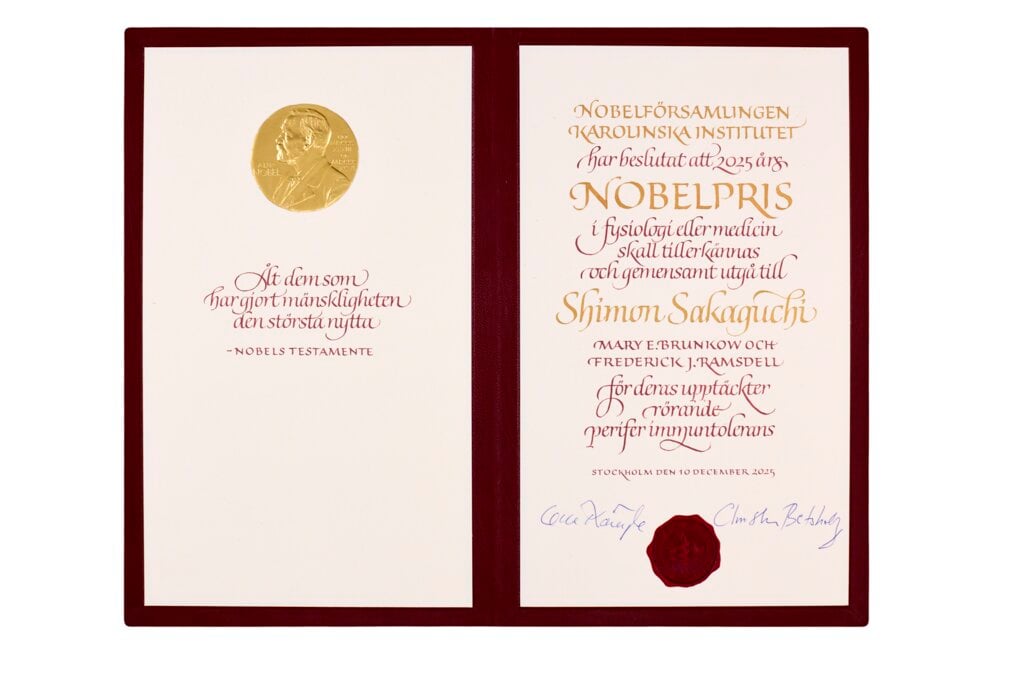 Åt dem som
har gjort mänskligheten
den största nytta
– NOBELS TESTAMENTE
NOBELFÖRSAMLINGEN
KAROLINSKA INSTITUTET
har beslutat att 2025 års
NOBELPRIS
i fysiologi eller medicin
skall tillerkännas
och gemensamt utgå till
Shimon Sakaguchi
MARY E. BRUNKOW OCH
FREDERICK J. RAMSDELL
för deras upptäckter
rörande
perifer immuntolerans
STOCKHOLM DEN 10 DECEMBER 2025